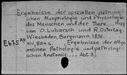 Ergebnisse der speziellen pathologi-
schen Morphologie und Physiologie
des Menschen und der Tiere. Hrsg.
von O. Lubarsch und R. Ostertag.
Wiesbaden, Bergmann 1896.
XV, 800 S. (Ergebnisse der allge-
meinen Pathologie und pathologi-
schen Anatomie... Abt. 3)